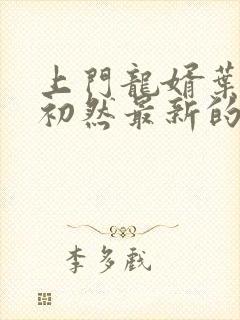 上門龍婿葉
初然最新的
李多戲